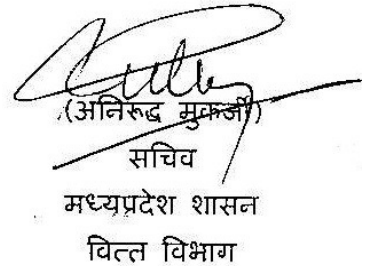 (अनिरुद्ध मुकर्जी)
सचिव
मध्यप्रदेश शासन
वित्त विभाग